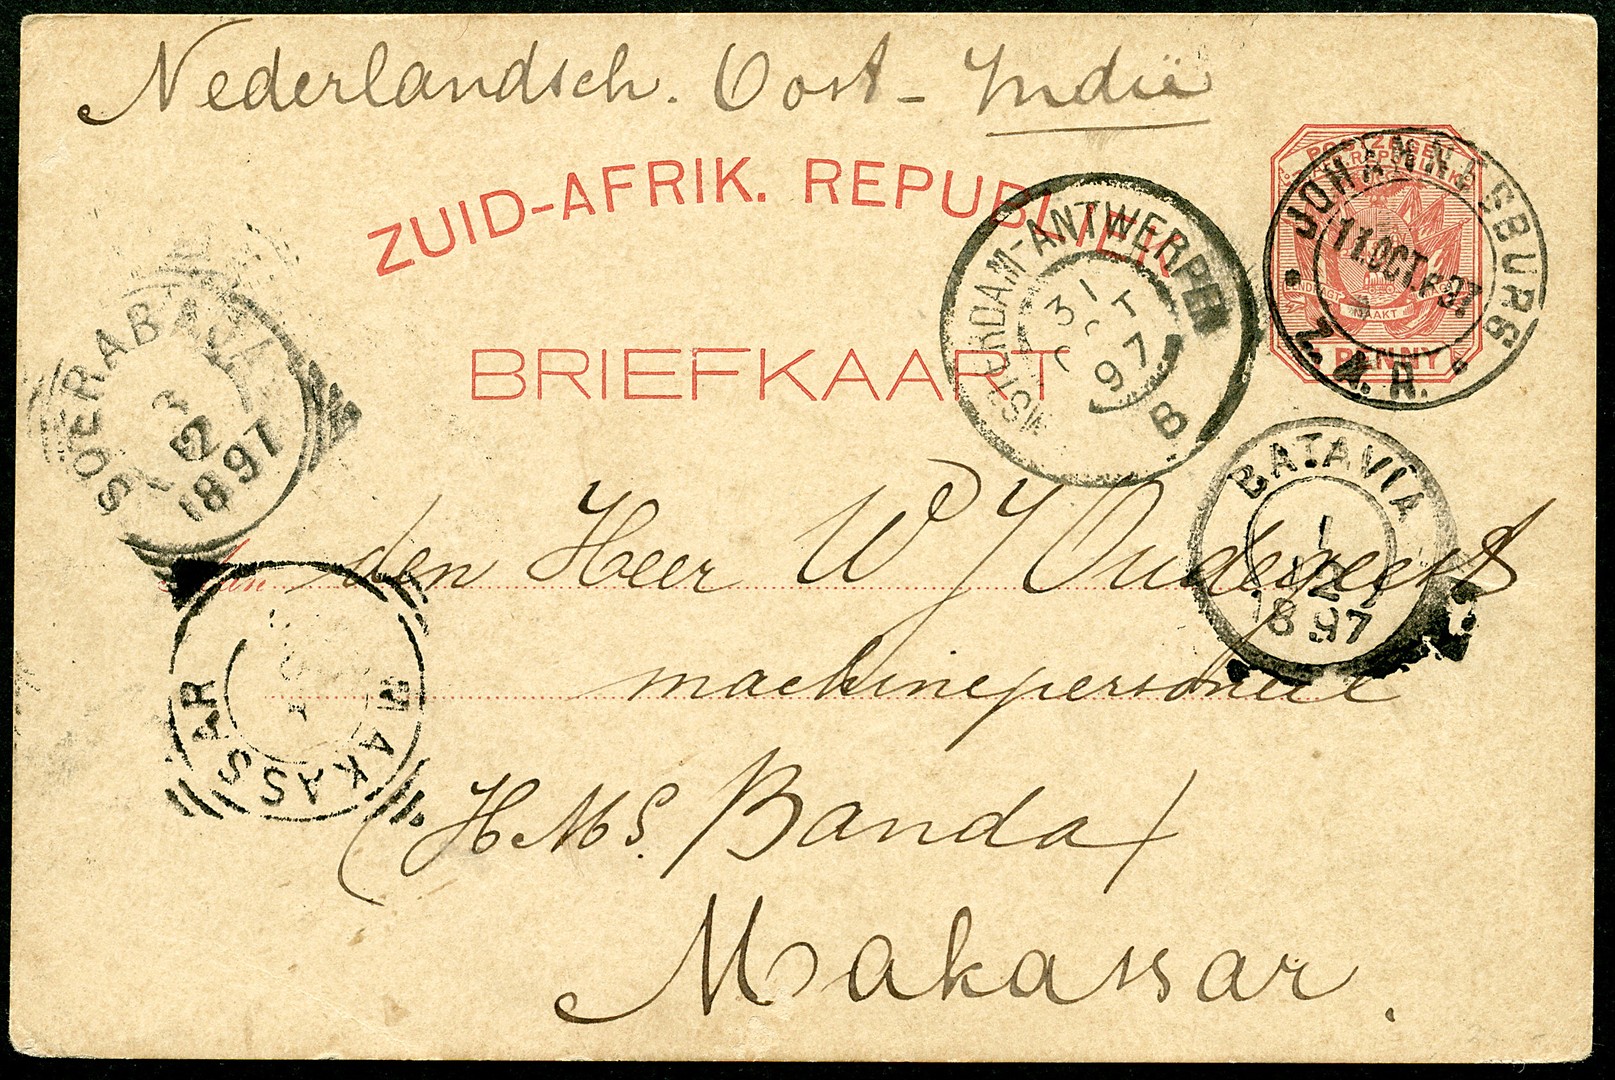 Nederlandsch. Oost-Indië
ZUID-AFRIK. REPUBLIEK
POSTZEGEL
PENNY
JOHANNESBURG
11.OCT.97.
Z.A.R.
BRIEFKAART
AMSTERDAM-ANTWERPEN
31 OCT 97
B
SOERABAJA
3 12 1897
BATAVIA
1 12 1897
Aan den Heer W J Oudegeest
machinepersoneel
(HMS. Banda)
Makassar.
MAKASSAR